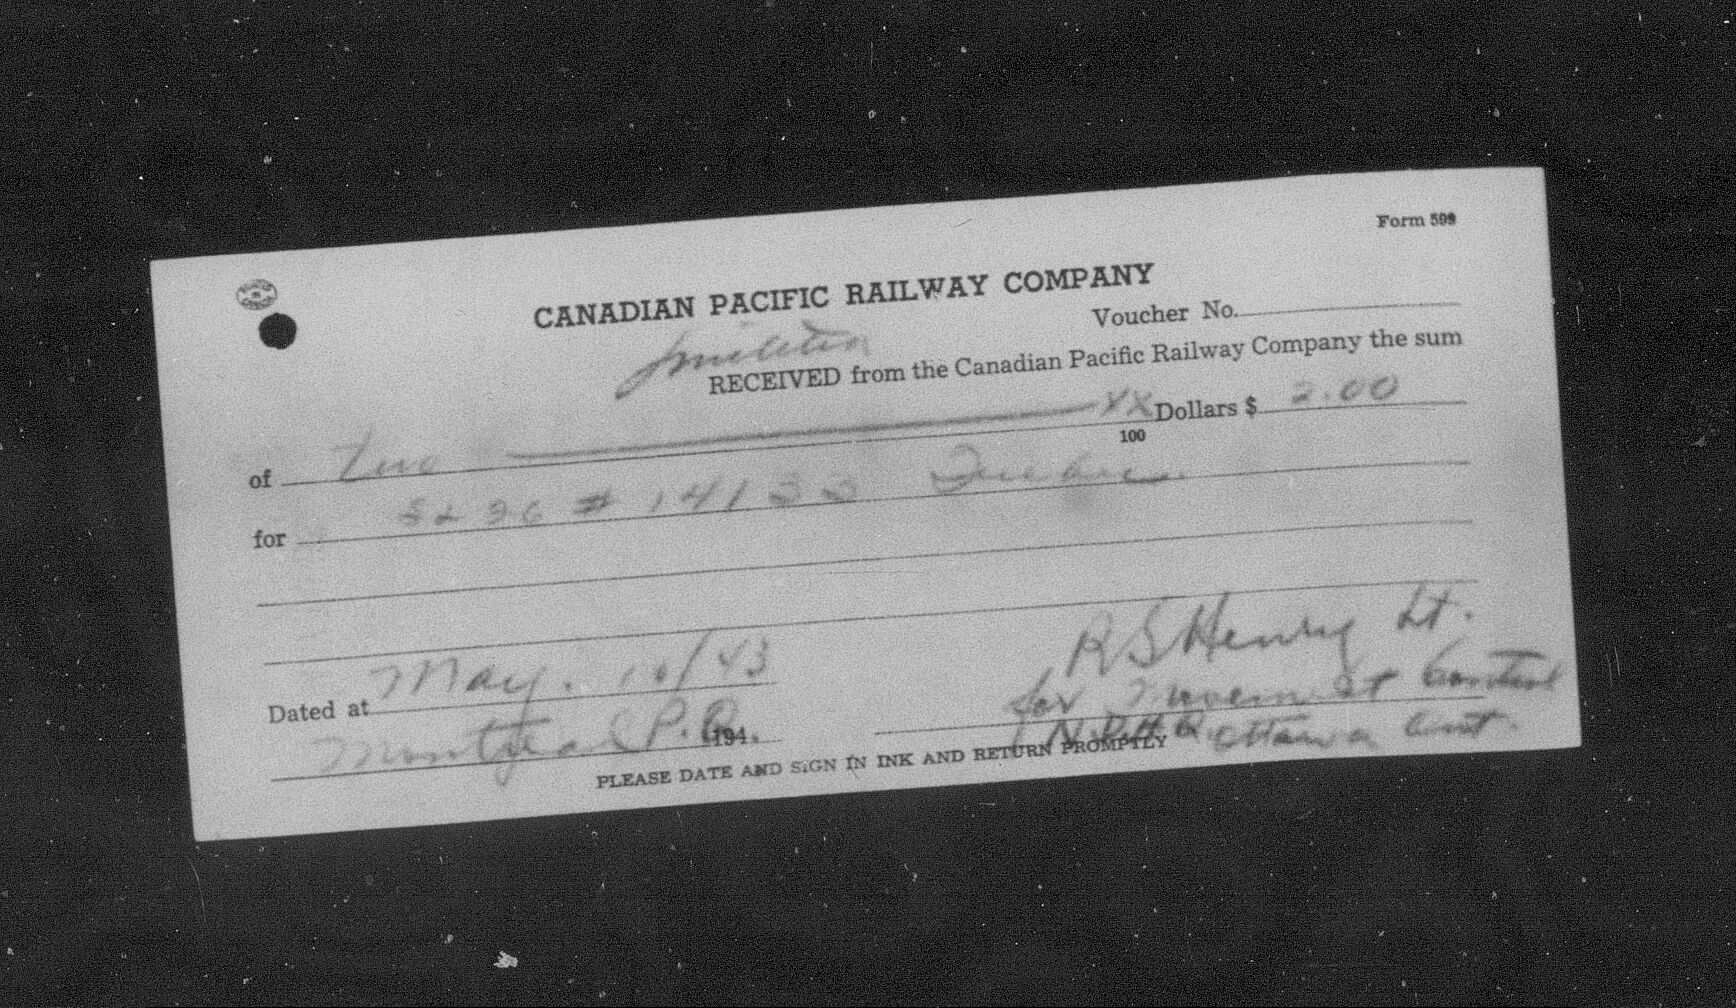 Form 599
CANADIAN PACIFIC RAILWAY COMPANY
Voucher No.
RECEIVED from the Canadian Pacific Railway Company the sum
of Two XX/100 Dollars $ 2.00
for # 14133 Quebec
R S Henry Lt.
Dated at May. 10/43
for Movement Control
Montreal P.Q. 194.
N.D.H.Q. Ottawa Ont.
PLEASE DATE AND SIGN IN INK AND RETURN PROMPTLY